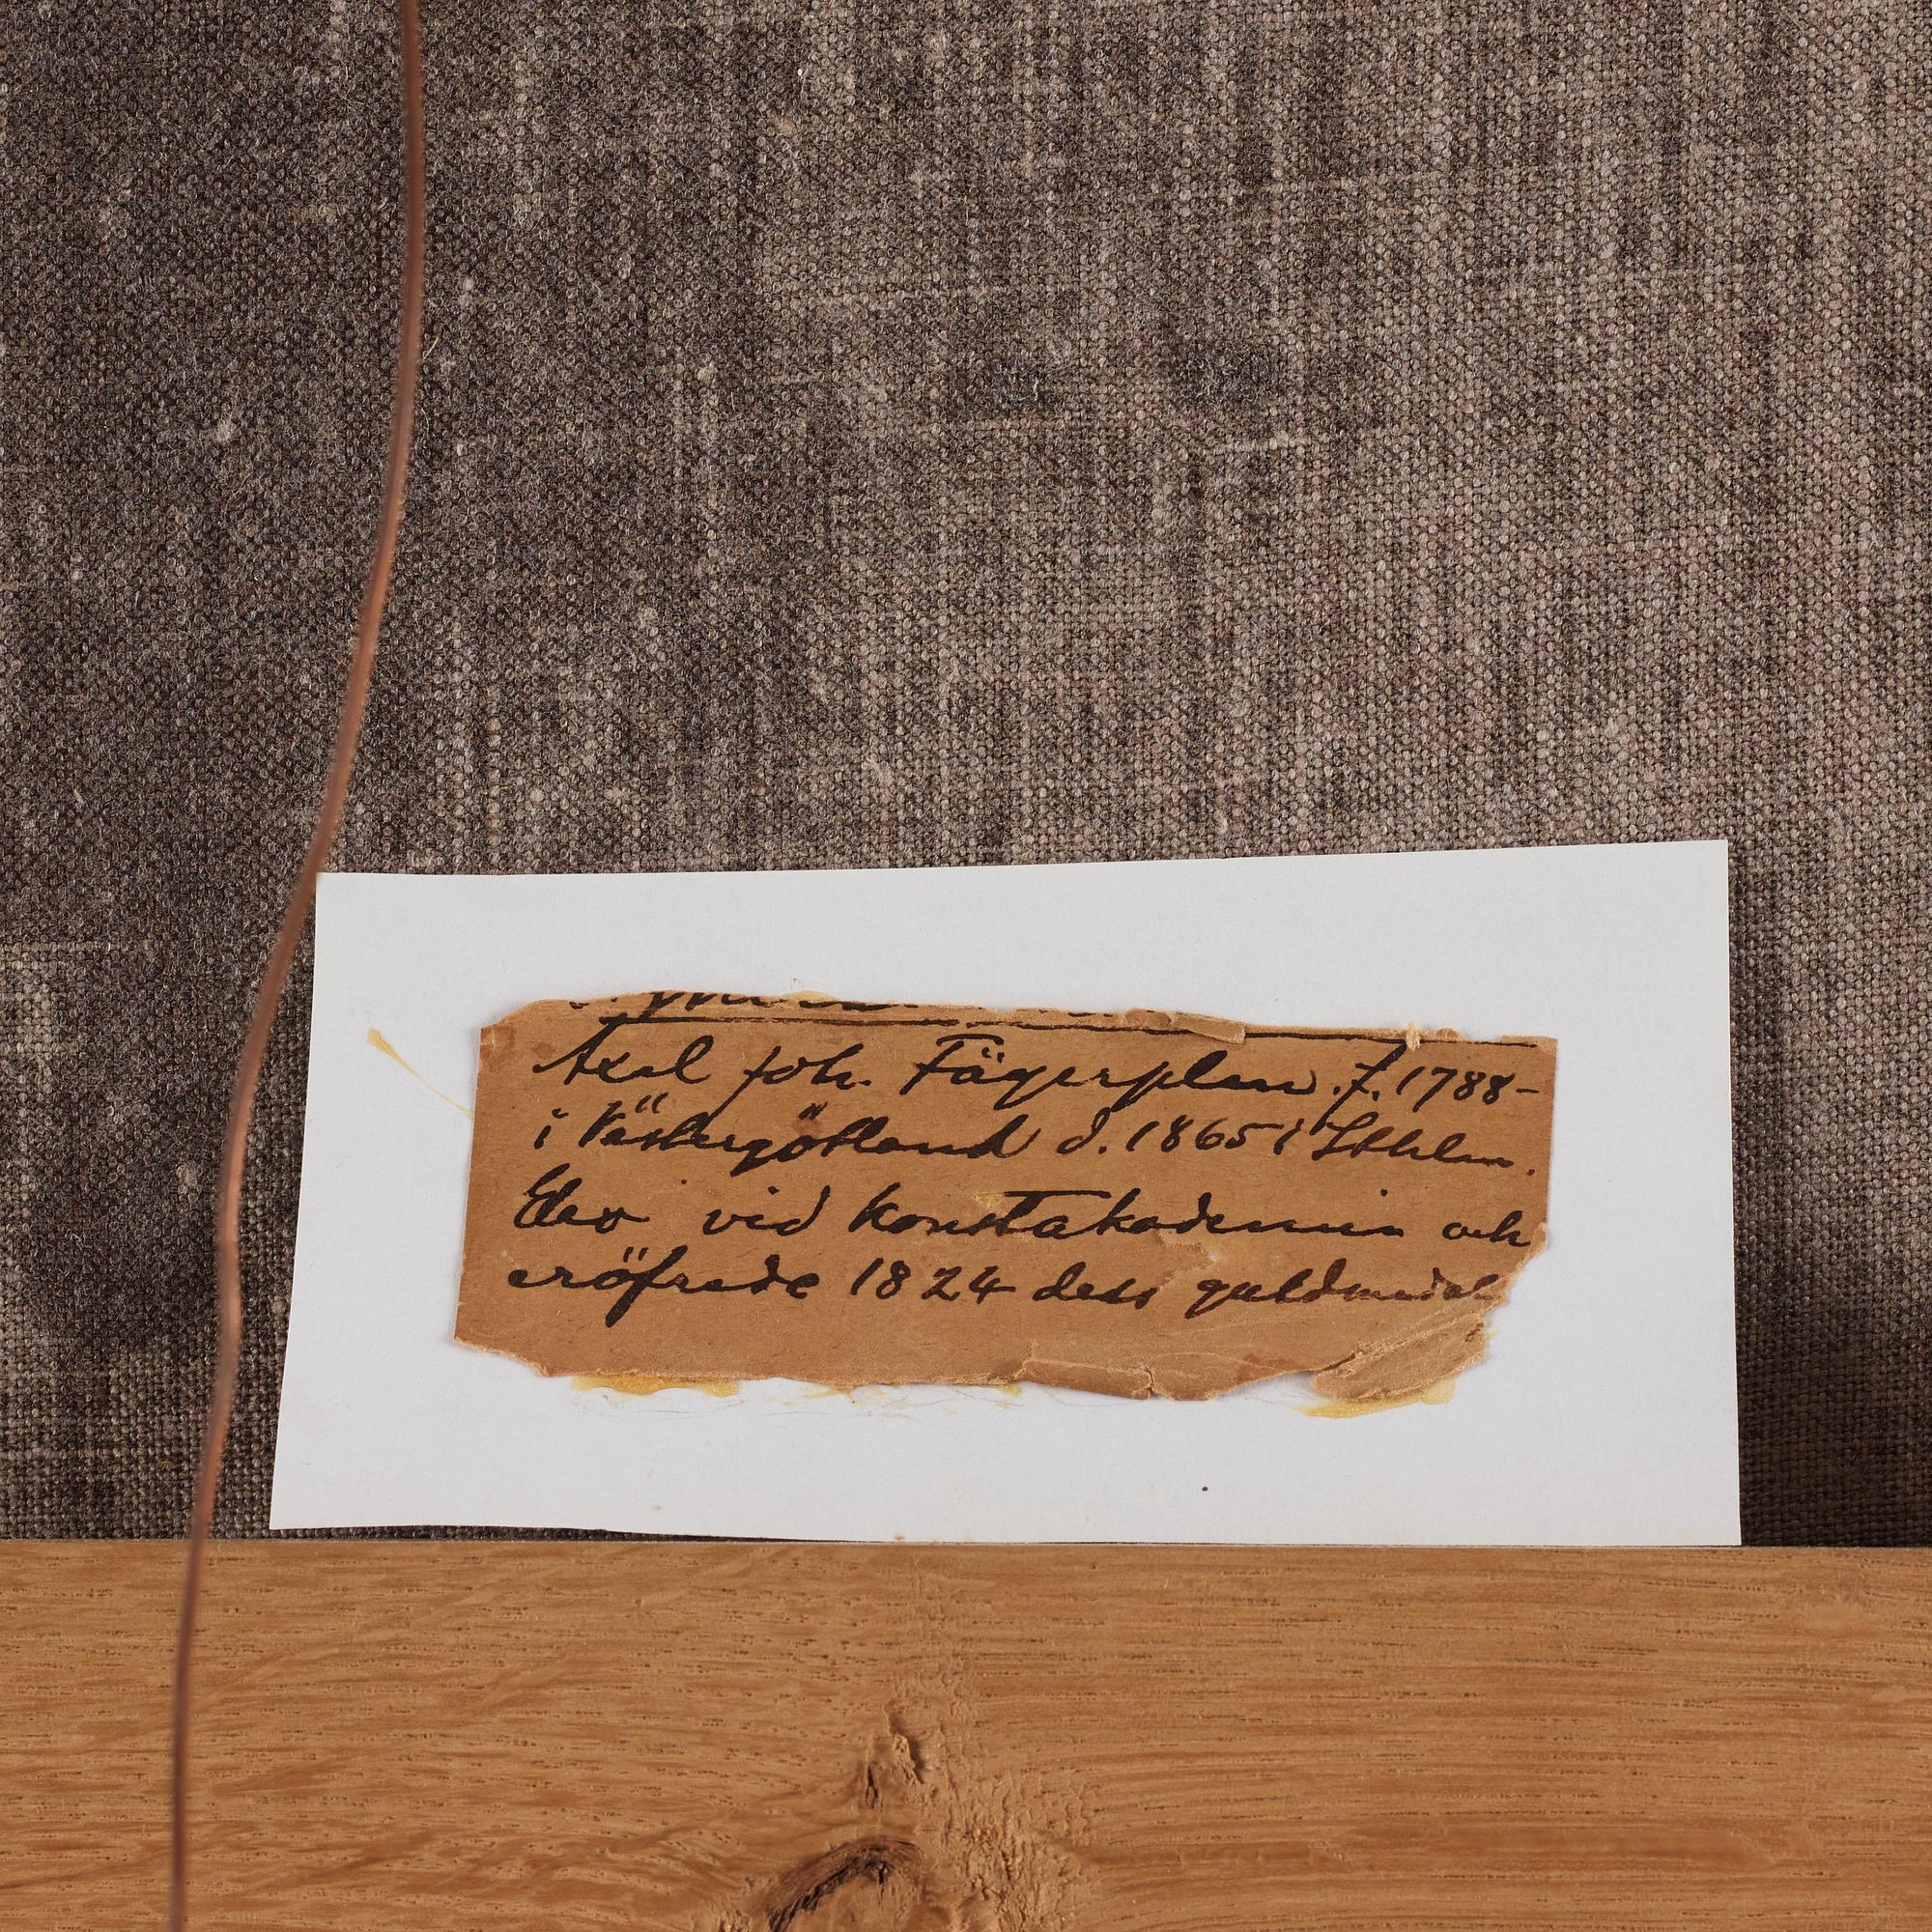 Axel Joh. Fägerplan. f. 1788-
i Västergötland d. 1865 i Sthlm.
Elev vid konstakademin och
eröfrade 1824 dess guldmedal